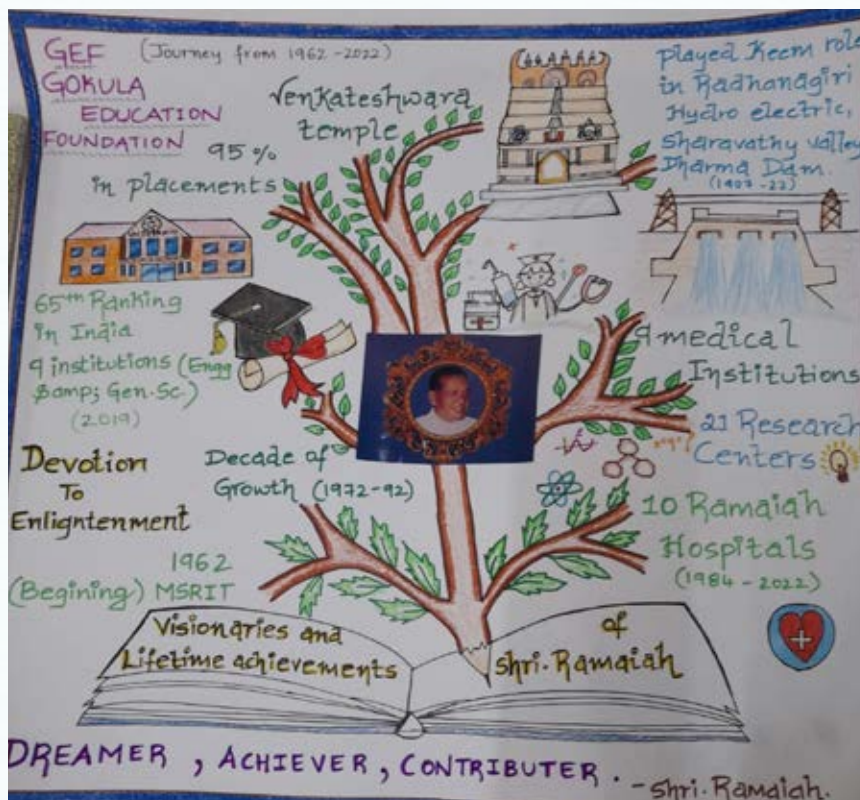 GEF (Journey from 1962-2022)
GOKULA
EDUCATION
FOUNDATION
Venkateshwara
temple
played Keem role
in Radhanagiri
Hydro electric,
Sharavathy valley
Dharma Dam.
(1907-22)
95%
in placements
65th Ranking
in India
9 institutions (Engg
&amp; Gen.Sc.)
(2019)
9 medical
Institutions
21 Research
Centers
Devotion
To
Enligntenment
Decade of
Growth (1972-92)
10 Ramaiah
Hospitals
(1984-2022)
1962
(Begining) MSRIT
Visionaries and
Lifetime achievements
of
shri.Ramaiah
DREAMER, ACHIEVER, CONTRIBUTER.
-shri.Ramaiah.